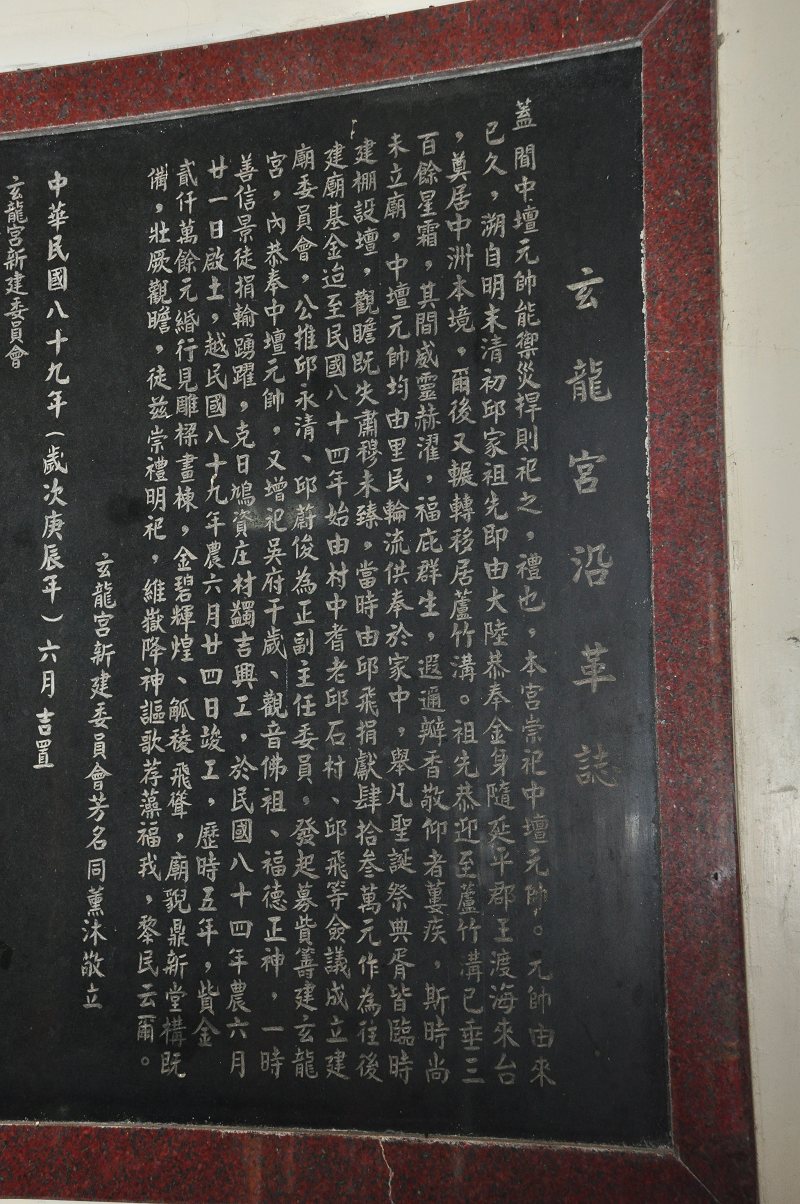 玄龍宮沿革誌
蓋聞中壇元帥能禦災捍則祀之，禮也，本宮崇祀中壇元帥。元帥由來
已久，溯自明末清初邱家祖先即由大陸恭奉金身隨延平郡王渡海來台
，奠居中洲本境，爾後又輾轉移居蘆竹溝。祖先恭迎至蘆竹溝已垂三
百餘星霜，其間威靈赫濯，福庇群生，遐邇瓣香敬仰者蔞疾，斯時尚
未立廟，中壇元帥均由里民輪流供奉於家中，舉凡聖誕祭典胥皆臨時
建棚設壇，觀瞻既失肅穆未臻，當時由邱飛捐獻肆拾叁萬元作為往後
建廟基金迨至民國八十四年始由村中耆老邱石村、邱飛等僉議成立建
廟委員會，公推邱永清、邱蔚俊為正副主任委員，發起募貲籌建玄龍
宮，內恭奉中壇元帥，又增祀吳府千歲、觀音佛祖、福德正神，一時
善信景徒捐輸踴躍，克日鳩資庄村蠲吉興工，於民國八十四年農六月
廿一日啟土，越民國八十九年農六月廿四日竣工，歷時五年，貲金
貳仟萬餘元緡行見雕樑畫棟，金碧輝煌、觚稜飛聳，廟貌鼎新堂構既
備，壯厥觀瞻，徒茲崇禮明祀，維嶽降神謳歌荐藻福我，黎民云爾。
玄龍宮新建委員會芳名同薰沐敬立
中華民國八十九年（歲次庚辰年）六月吉置
玄龍宮新建委員會